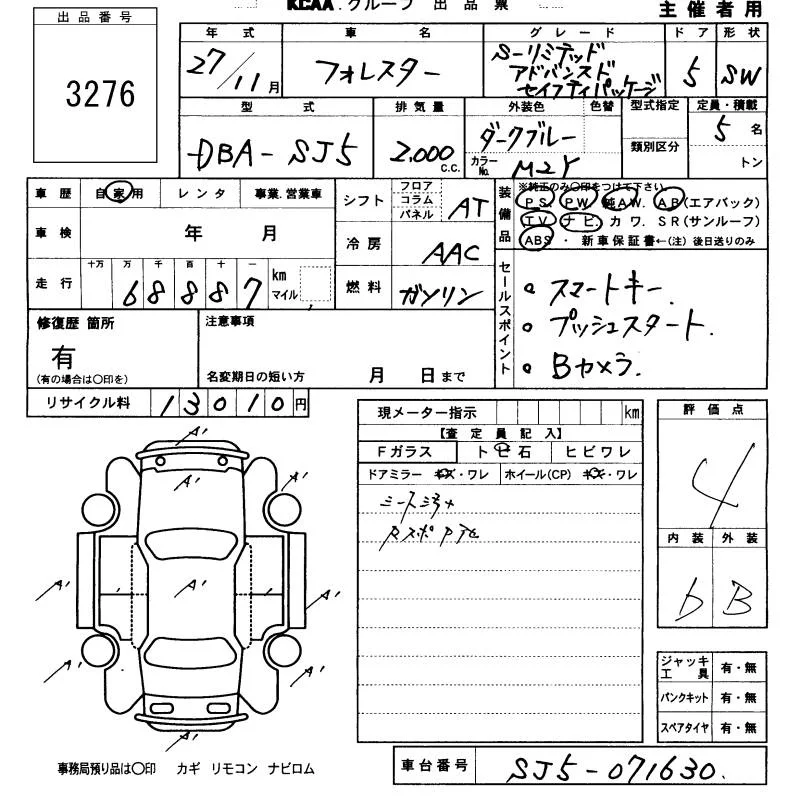 KCAA.グループ 出品票
主催者用
出品番号
3276
年式 車名 グレード ドア 形状
27/11月 フォレスター S-リミテッド アドバンスド セイフティパッケージ 5 SW
型式 排気量 外装色 色替 型式指定 定員・積載
類別区分
DBA-SJ5 2,000 C.C. ダークブルー 5名
カラーNo. M2Y トン
車歴 自家用 レンタ 事業.営業車
シフト フロア コラム パネル AT
装備品
※純正のみ〇印をつけて下さい
PS. PW. 純AW. AB(エアバック)
TV. ナビ. カワ. SR(サンルーフ)
ABS・新車保証書←(注)後日送りのみ
車検 年 月
冷房 AAC
走行 十万 万 千 百 十 一
68887 km マイル
燃料 ガソリン
セールスポイント
。スマートキー.
。プッシュスタート.
。Bカメラ.
修復歴 箇所
有
(有の場合は〇印を)
注意事項
名変期日の短い方 月 日まで
リサイクル料 13010円
現メーター指示 km
【査定員記入】
Fガラス ト ビ 石 ヒビワレ
ドアミラー キズ・ワレ ホイール(CP) キズ・ワレ
評価点
4
内装 外装
b B
A'
A'
A'
A'
A'
A'
A'
A'
A'
ジャッキ 工具 有・無
パンクキット 有・無
スペアタイヤ 有・無
事務局預り品は〇印 カギ リモコン ナビロム
車台番号 SJ5-071630.